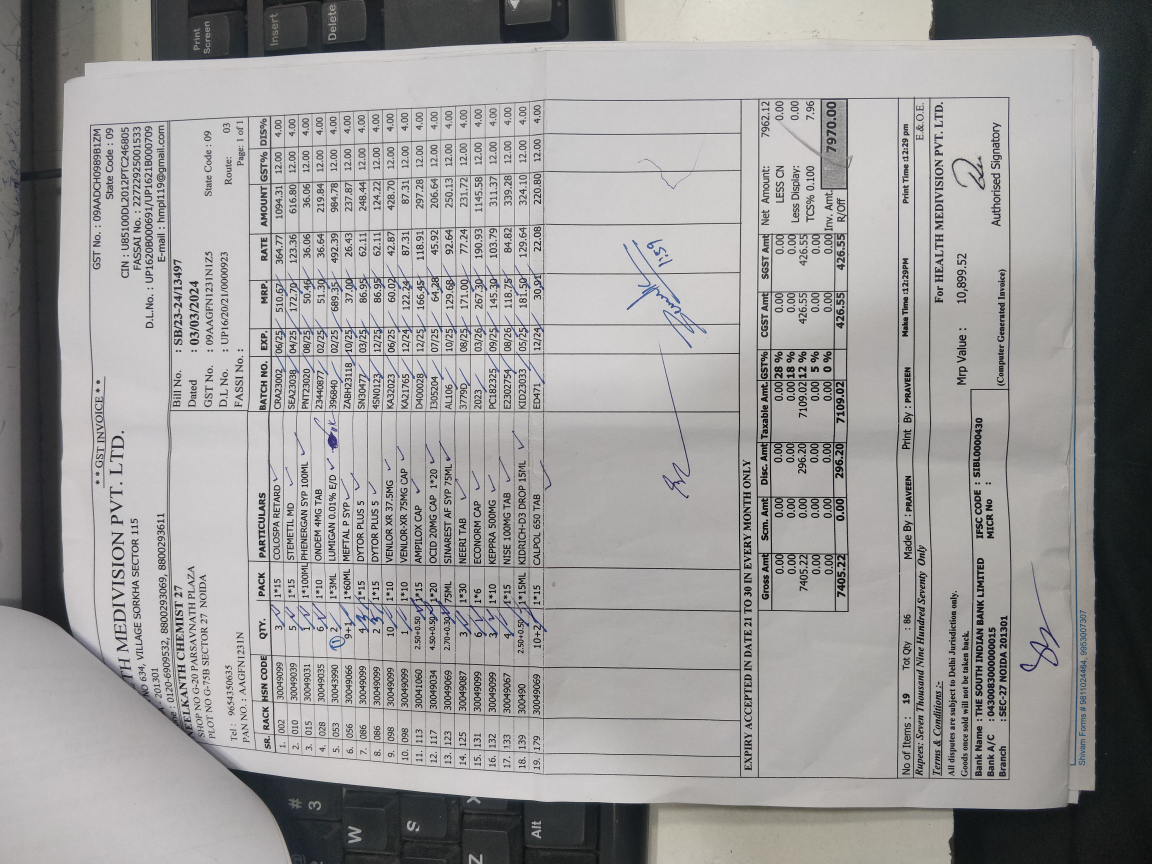 * * GST INVOICE * *
GST No. : 09AADCH0989B1ZM
TH MEDIVISION PVT. LTD.
State Code : 09
NO 634, VILLAGE SORKHA SECTOR 115
CIN : U85100DL2012PTC246805
201301
FASSAI No. : 22722925001533
: 0120-6909532, 8800293069, 8800293611
D.L.No. : UP1620B000691/UP1621B000709
E-mail : hmpl119@gmail.com
EELKANTH CHEMIST 27
SHOP NO G-20 PARSAVNATH PLAZA
PLOT NO G-75B SECTOR 27 NOIDA
Tel : 9654350635
PAN NO. : AAGFN1231N
Bill No. : SB/23-24/13497
Dated : 03/03/2024
GST No. : 09AAGFN1231N1Z5 State Code : 09
D.L No. : UP16/20/21/0000923 Route: 03
FASSI No. : Page: 1 of 1
SR. RACK HSN CODE QTY. PACK PARTICULARS BATCH NO. EXP. MRP. RATE AMOUNT GST% DIS%
1. 002 30049099 3 1*15 COLOSPA RETARD CRA23002 06/25 510.67 364.77 1094.31 12.00 4.00
2. 010 30049039 5 1*15 STEMETIL MD SEA23038 04/25 172.70 123.36 616.80 12.00 4.00
3. 015 30049031 1 1*100ML PHENERGAN SYP 100ML PNT23020 08/25 50.46 36.06 36.06 12.00 4.00
4. 028 30049035 6 1*10 ONDEM 4MG TAB 23440877 02/25 51.30 36.64 219.84 12.00 4.00
5. 053 30043990 2 1*3ML LUMIGAN 0.01% E/D 396840 02/25 689.35 492.39 984.78 12.00 4.00
6. 056 30049066 9+1 1*60ML MEFTAL P SYP ZABH23118 10/25 37.00 26.43 237.87 12.00 4.00
7. 086 30049099 4 1*15 DYTOR PLUS 5 SN30477 03/25 86.95 62.11 248.44 12.00 4.00
8. 086 30049099 2 1*15 DYTOR PLUS 5 4SN0123 12/25 86.95 62.11 124.22 12.00 4.00
9. 098 30049099 10 1*10 VENLOR XR 37.5MG KA32023 06/25 60.02 42.87 428.70 12.00 4.00
10. 098 30049099 1 1*10 VENLOR-XR 75MG CAP KA21765 12/24 122.24 87.31 87.31 12.00 4.00
11. 113 30041060 2.50+0.50 1*15 AMPILOX CAP D400028 12/25 166.45 118.91 297.28 12.00 4.00
12. 117 30049034 4.50+0.50 1*20 OCID 20MG CAP 1*20 I305204 07/25 64.28 45.92 206.64 12.00 4.00
13. 123 30049069 2.70+0.30 75ML SINAREST AF SYP 75ML AL106 10/25 129.68 92.64 250.13 12.00 4.00
14. 125 30049087 3 1*30 NEERI TAB 3779D 08/25 171.00 77.24 231.72 12.00 4.00
15. 131 30049099 6 1*6 ECONORM CAP 2023 03/26 267.30 190.93 1145.58 12.00 4.00
16. 132 30049099 3 1*10 KEPPRA 500MG PC182325 09/25 145.30 103.79 311.37 12.00 4.00
17. 133 30049067 4 1*15 NISE 100MG TAB E2302754 08/26 118.75 84.82 339.28 12.00 4.00
18. 139 300490 2.50+0.50 1*15ML KIDRICH-D3 DROP 15ML KID23033 05/25 181.50 129.64 324.10 12.00 4.00
19. 179 30049069 10+2 1*15 CALPOL 650 TAB ED471 12/24 30.91 22.08 220.80 12.00 4.00
1:59
EXPIRY ACCEPTED IN DATE 21 TO 30 IN EVERY MONTH ONLY
Gross Amt Scm. Amt Disc. Amt Taxable Amt. GST% CGST Amt SGST Amt
0.00 0.00 0.00 0.00 28 % 0.00 0.00
0.00 0.00 0.00 0.00 18 % 0.00 0.00
7405.22 0.00 296.20 7109.02 12 % 426.55 426.55
0.00 0.00 0.00 0.00 5 % 0.00 0.00
0.00 0.00 0.00 0.00 0 % 0.00 0.00
7405.22 0.00 296.20 7109.02 426.55 426.55
Net Amount: 7962.12
LESS CN 0.00
Less Display: 0.00
TCS% 0.100 7.96
Inv. Amt. 7970.00
R/Off
No of Items : 19 Tot Qty : 86 Made By : PRAVEEN Print By : PRAVEEN Make Time :12:29PM Print Time :12:29 pm
Rupees: Seven Thousand Nine Hundred Seventy Only
E.& O.E.
Terms & Conditions :-
All disputes are subject to Delhi Jurisdiction only.
Goods once sold will not be taken back.
Mrp Value : 10,899.52
For HEALTH MEDIVISION PVT. LTD.
Bank Name : THE SOUTH INDIAN BANK LIMITED IFSC CODE : SIBL0000430
Bank A/C : 0430083000000015 MICR No :
Branch : SEC-27 NOIDA 201301
(Computer Generated Invoice)
Authorised Signatory
Shivam Forms # 9811024464, 9953007307
Print
Screen
Insert
Delete
#
3
W
S
Z
X
Alt